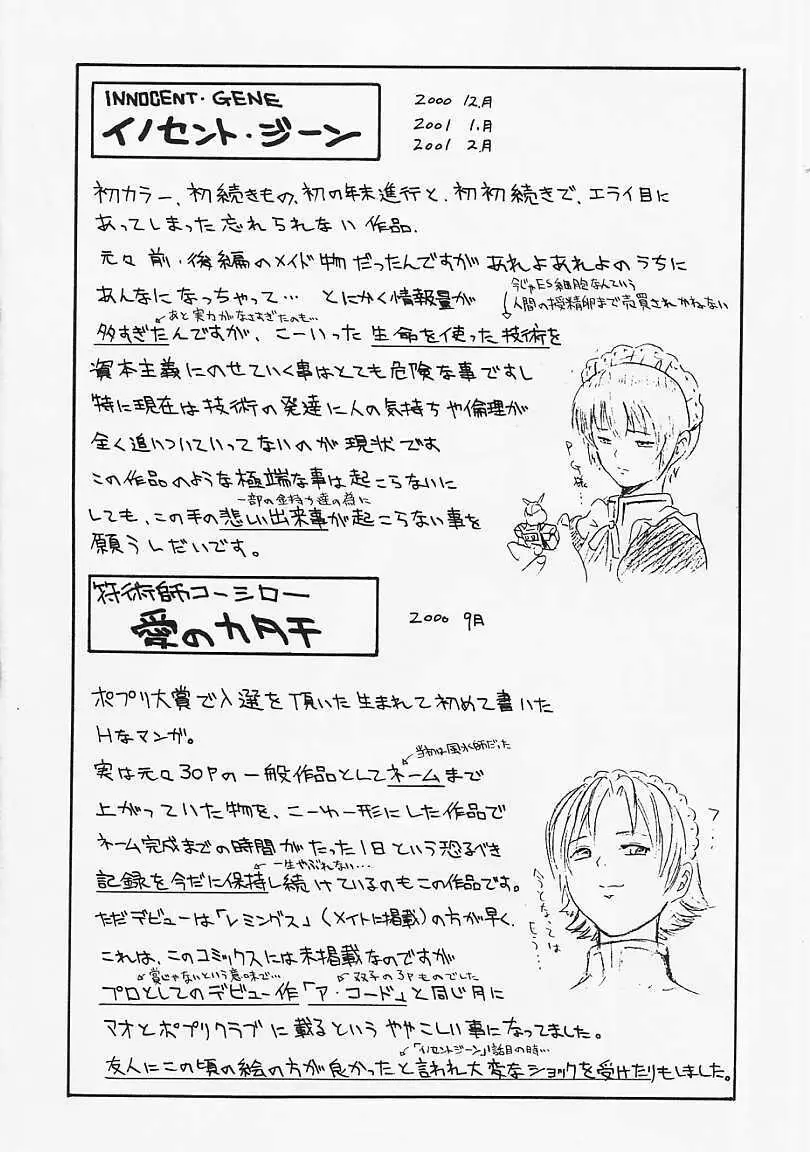 INNOCENT・GENE
イノセント・ジーン
2000 12月
2001 1月
2001 2月
初カラー、初続きもの、初の年末進行と、初初続きで、エライ目に
あってしまった忘れられない作品.
元々前・後編のメイド物だったんですがあれよあれよのうちに
あんなになっちゃって… とにかく情報量が
今じゃES細胞なんていう
人間の授精卵まで売買されかねない
あと実力がなさすぎたのも…
多すぎたんですが、こーいった生命を使った技術を
資本主義にのせていく事はとても危険な事ですし
特に現在は技術の発達に人の気持ちや倫理が
全く追いついていってないのが現状です
この作品のような極端な事は起こらないに
一部の金持ち達の為に
しても、この手の悲しい出来事が起こらない事を
願うしだいです。
P.G様…
符術師コーシロー
愛のカタチ
2000 9月
ポプリ大賞で入選を頂いた生まれて初めて書いた
Hなマンガ。
当初は風水師だった
実は元々30Pの一般作品としてネームまで
上がっていた物を、こーゆー形にした作品で
ネーム完成までの時間がたった1日という恐るべき
一生やぶれない…
記録を今だに保持し続けているのもこの作品です。
ただデビューは「レミングス」(メイトに掲載)の方が早く、
これは、このコミックスには未掲載なのですが
賞じゃないという意味で…
双子の3Pものでした
プロとしてのデビュー作「ア・コード」と同じ月に
マオとポプリクラブに載るというややこしい事になってました。
「イノセントジーン」1話目の時…
友人にこの頃の絵の方が良かったと言われ大変なショックを受けたりもしました。
フ…
今となっては
もう…